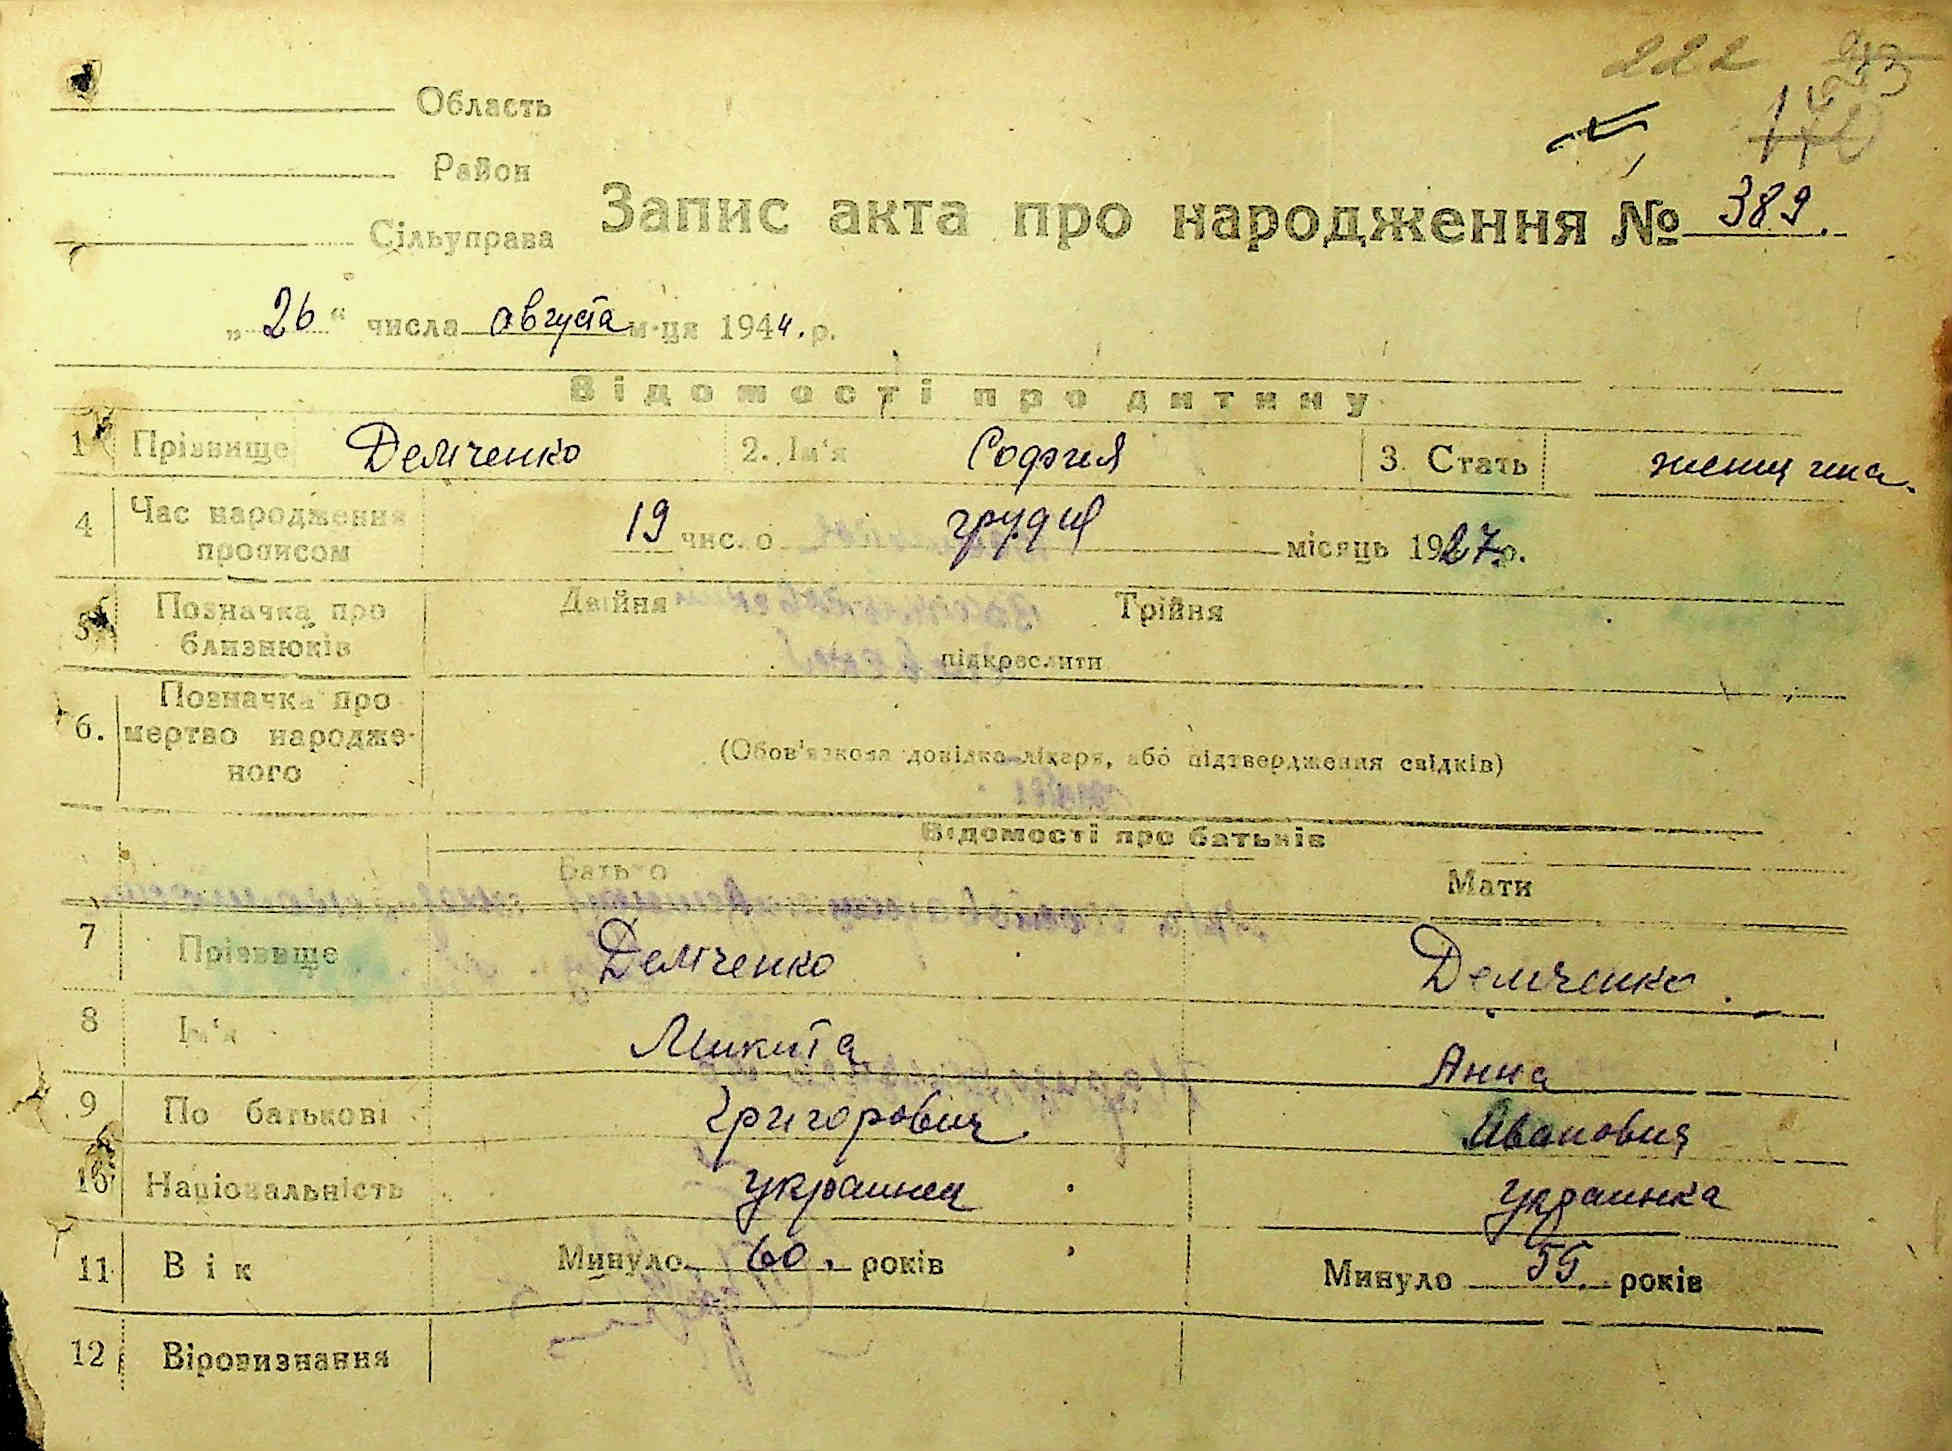 222
Область
Район
Сільуправа
Запис акта про народження № 389.
„26“ числа августа м-ця 1944. р.
Відомості про дитину
1 Прізвище Демченко 2. Ім'я София 3. Стать женщина.
4 Час народження прописом 19 число грудня місяць 1927 р.
5 Позначка про близнюків Двійня Трійня
підкреслити
6. Позначка про мертво народженого
(Обов'язкова довідка лікаря, або підтвердження свідків)
Відомості про батьків
Батько Мати
7 Прізвище Демченко Демченко.
8 Ім'я Микита Анна
9 По батькові Григорович Ивановня
10 Національність украинец украинка
11 Вік Минуло 60. років Минуло 55. років
12 Віровизнання